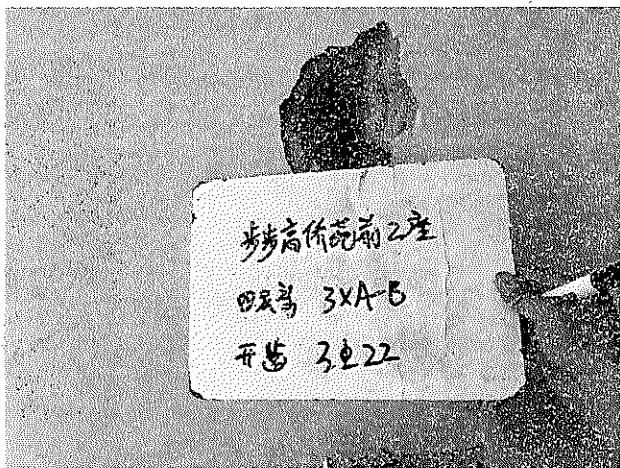 步步高侨苑前2座
四层梁 3XA-B
开凿 3⌀22